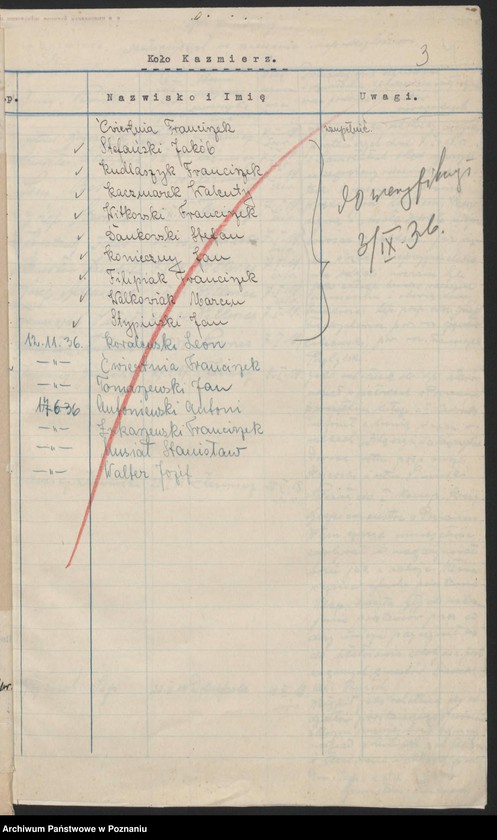 3
Koło Kazmierz.
p. Nazwisko i Imię Uwagi.
Ćwiertnia Franciszek uzupełnić
✓ Stefański Jakób
✓ Kudlaszyk Franciszek
✓ Kaczmarek Walenty
✓ Witkowski Franciszek
✓ Dankowski Stefan
✓ Konieczny Jan
✓ Filipiak Franciszek
✓ Walkowiak Marcin
✓ Stypiński Jan
do weryfikacji
3/IX.36.
12.11.36. Kowalewski Leon
—"— Ćwiertnia Franciszek
—"— Tomaszewski Jan
17.6.36 Antoniewski Antoni
—"— Łukaszewski Franciszek
—"— Musiał Stanisław
—"— Walter Józef
Archiwum Państwowe w Poznaniu